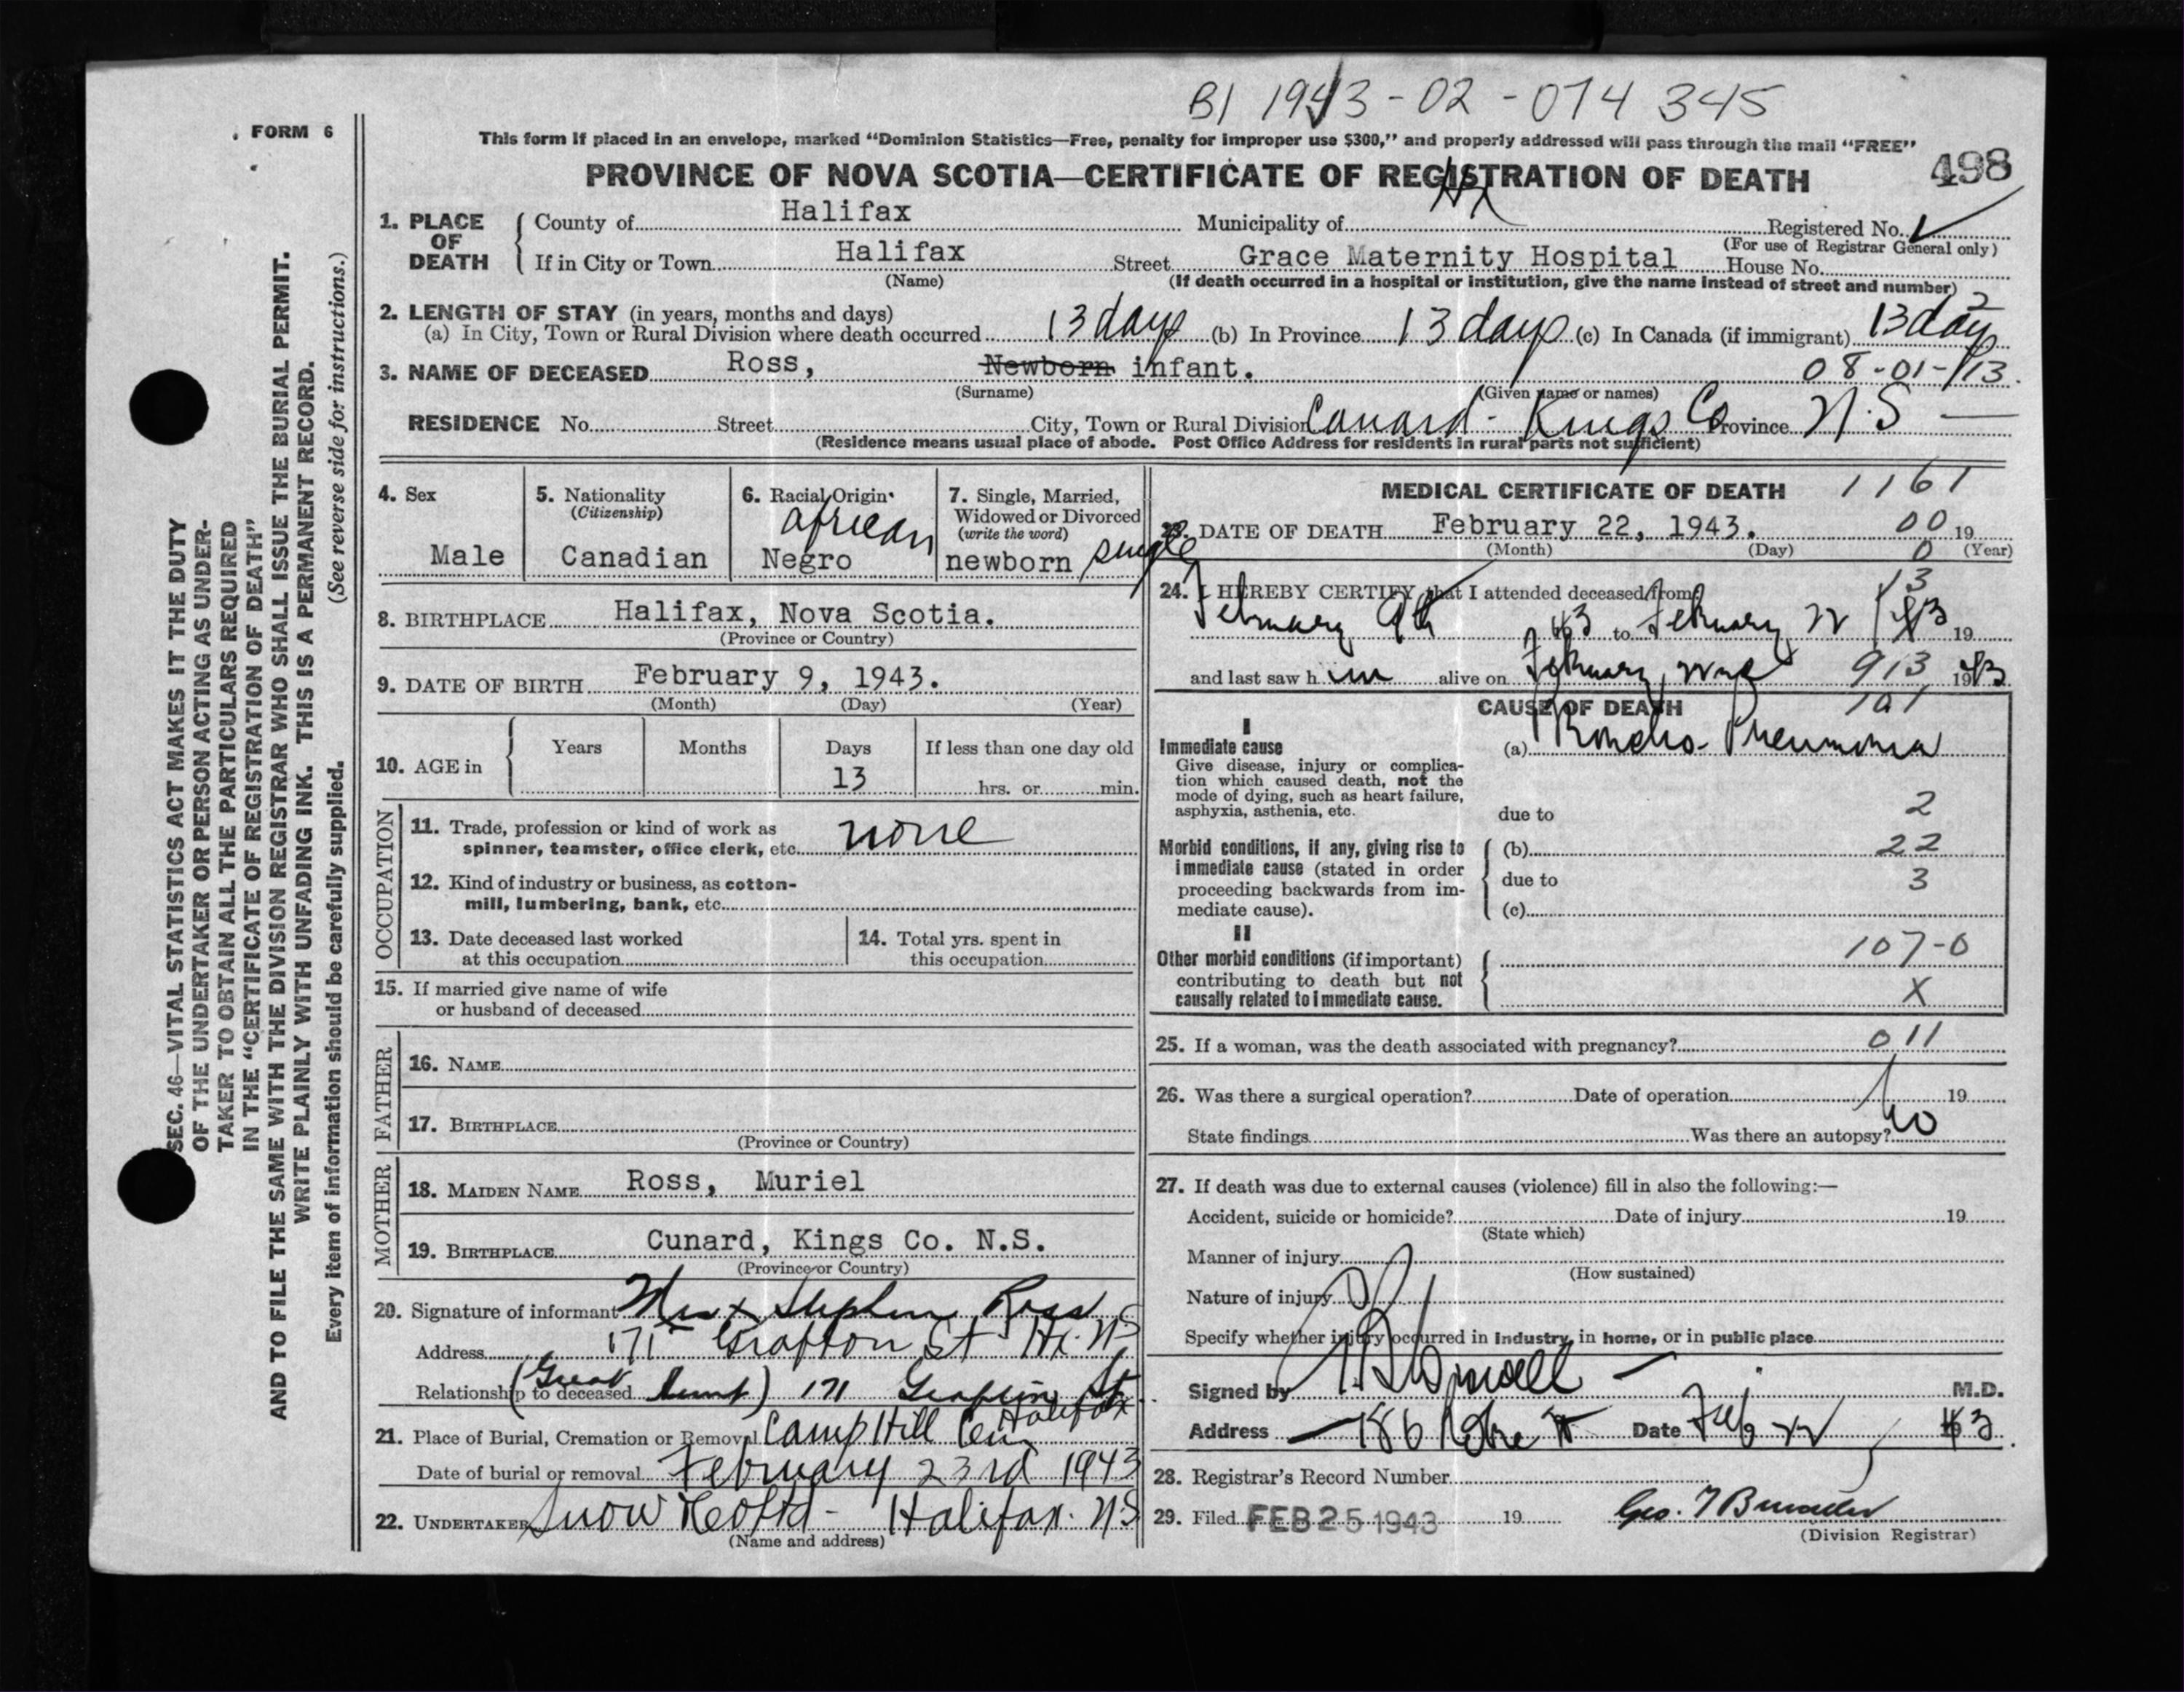 B1 1943-02-074345
FORM 6
This form if placed in an envelope, marked "Dominion Statistics—Free, penalty for improper use $300," and properly addressed will pass through the mail "FREE"
PROVINCE OF NOVA SCOTIA—CERTIFICATE OF REGISTRATION OF DEATH
498
SEC. 46—VITAL STATISTICS ACT MAKES IT THE DUTY
OF THE UNDERTAKER OR PERSON ACTING AS UNDER-
TAKER TO OBTAIN ALL THE PARTICULARS REQUIRED
IN THE "CERTIFICATE OF REGISTRATION OF DEATH"
AND TO FILE THE SAME WITH THE DIVISION REGISTRAR WHO SHALL ISSUE THE BURIAL PERMIT.
WRITE PLAINLY WITH UNFADING INK. THIS IS A PERMANENT RECORD.
Every item of information should be carefully supplied. (See reverse side for instructions.)
1. PLACE OF DEATH
County of Halifax Municipality of Hx Registered No.
(For use of Registrar General only)
If in City or Town Halifax Street Grace Maternity Hospital House No.
(Name) (If death occurred in a hospital or institution, give the name instead of street and number)
2. LENGTH OF STAY (in years, months and days)
(a) In City, Town or Rural Division where death occurred 13 days (b) In Province 13 days (c) In Canada (if immigrant) 13 days
2
3. NAME OF DECEASED Ross, Newborn infant. 08-01-
(Surname) (Given name or names)
RESIDENCE No. Street City, Town or Rural Division Canard - Kings Co Province N.S
(Residence means usual place of abode. Post Office Address for residents in rural parts not sufficient)
4. Sex
Male
5. Nationality
(Citizenship)
Canadian
6. Racial Origin
african
Negro
7. Single, Married,
Widowed or Divorced
(write the word)
newborn single
8. BIRTHPLACE Halifax, Nova Scotia.
(Province or Country)
9. DATE OF BIRTH February 9, 1943.
(Month) (Day) (Year)
10. AGE in
Years Months Days If less than one day old
13 hrs. or min.
OCCUPATION
11. Trade, profession or kind of work as
spinner, teamster, office clerk, etc. none
12. Kind of industry or business, as cotton-
mill, lumbering, bank, etc.
13. Date deceased last worked
at this occupation
14. Total yrs. spent in
this occupation
15. If married give name of wife
or husband of deceased
FATHER
16. NAME
17. BIRTHPLACE
(Province or Country)
MOTHER
18. MAIDEN NAME Ross, Muriel
19. BIRTHPLACE Cunard, Kings Co. N.S.
(Province or Country)
20. Signature of informant Mrs x Stephen Ross
Address 171 Grafton St Hx. N.S
Relationship to deceased (Great Aunt) 171 Grafton St.
Halifax
21. Place of Burial, Cremation or Removal Camp Hill Cem
Date of burial or removal February 23rd 1943
22. UNDERTAKER Snow & Co Ltd - Halifax. N.S
(Name and address)
MEDICAL CERTIFICATE OF DEATH 1161
23. DATE OF DEATH February 22, 1943. 00 19
(Month) (Day) 0 (Year)
24. I HEREBY CERTIFY that I attended deceased from 13
February 9th 43 to February 22 43 19
and last saw him alive on February 913 1943
CAUSE OF DEATH 101
I
Immediate cause
Give disease, injury or complica-
tion which caused death, not the
mode of dying, such as heart failure,
asphyxia, asthenia, etc.
(a) Broncho-Pneumonia
due to 2
Morbid conditions, if any, giving rise to
immediate cause (stated in order
proceeding backwards from im-
mediate cause).
(b) 22
due to 3
(c)
II
Other morbid conditions (if important)
contributing to death but not
causally related to immediate cause.
107-0
X
25. If a woman, was the death associated with pregnancy? 011
26. Was there a surgical operation? Date of operation 19
State findings Was there an autopsy? No
27. If death was due to external causes (violence) fill in also the following:—
Accident, suicide or homicide? Date of injury 19
(State which)
Manner of injury
(How sustained)
Nature of injury
Specify whether injury occurred in industry, in home, or in public place
Signed by M.D.
Address 186 Date Feb 22 43
28. Registrar's Record Number
29. Filed FEB 25 1943 19 Geo.
(Division Registrar)